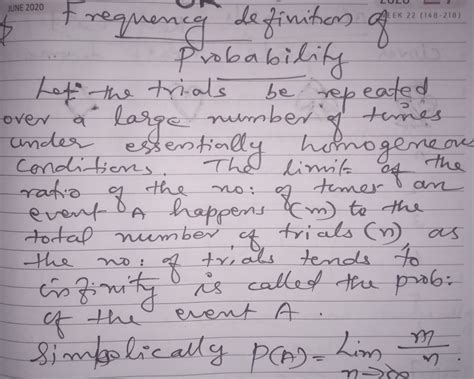 JUNE 2020
EEK 22 (148-218)
Frequency definition of
Probability
Let the trials be repeated
over a large number of times
under essentially homogeneous
conditions. The limit of the
ratio of the no: of times an
event A happens (m) to the
total number of trials (n) as
the no: of trials tends to
infinity is called the prob:
of the event A.
Simbolically P(A) = Lim m/n
n→∞